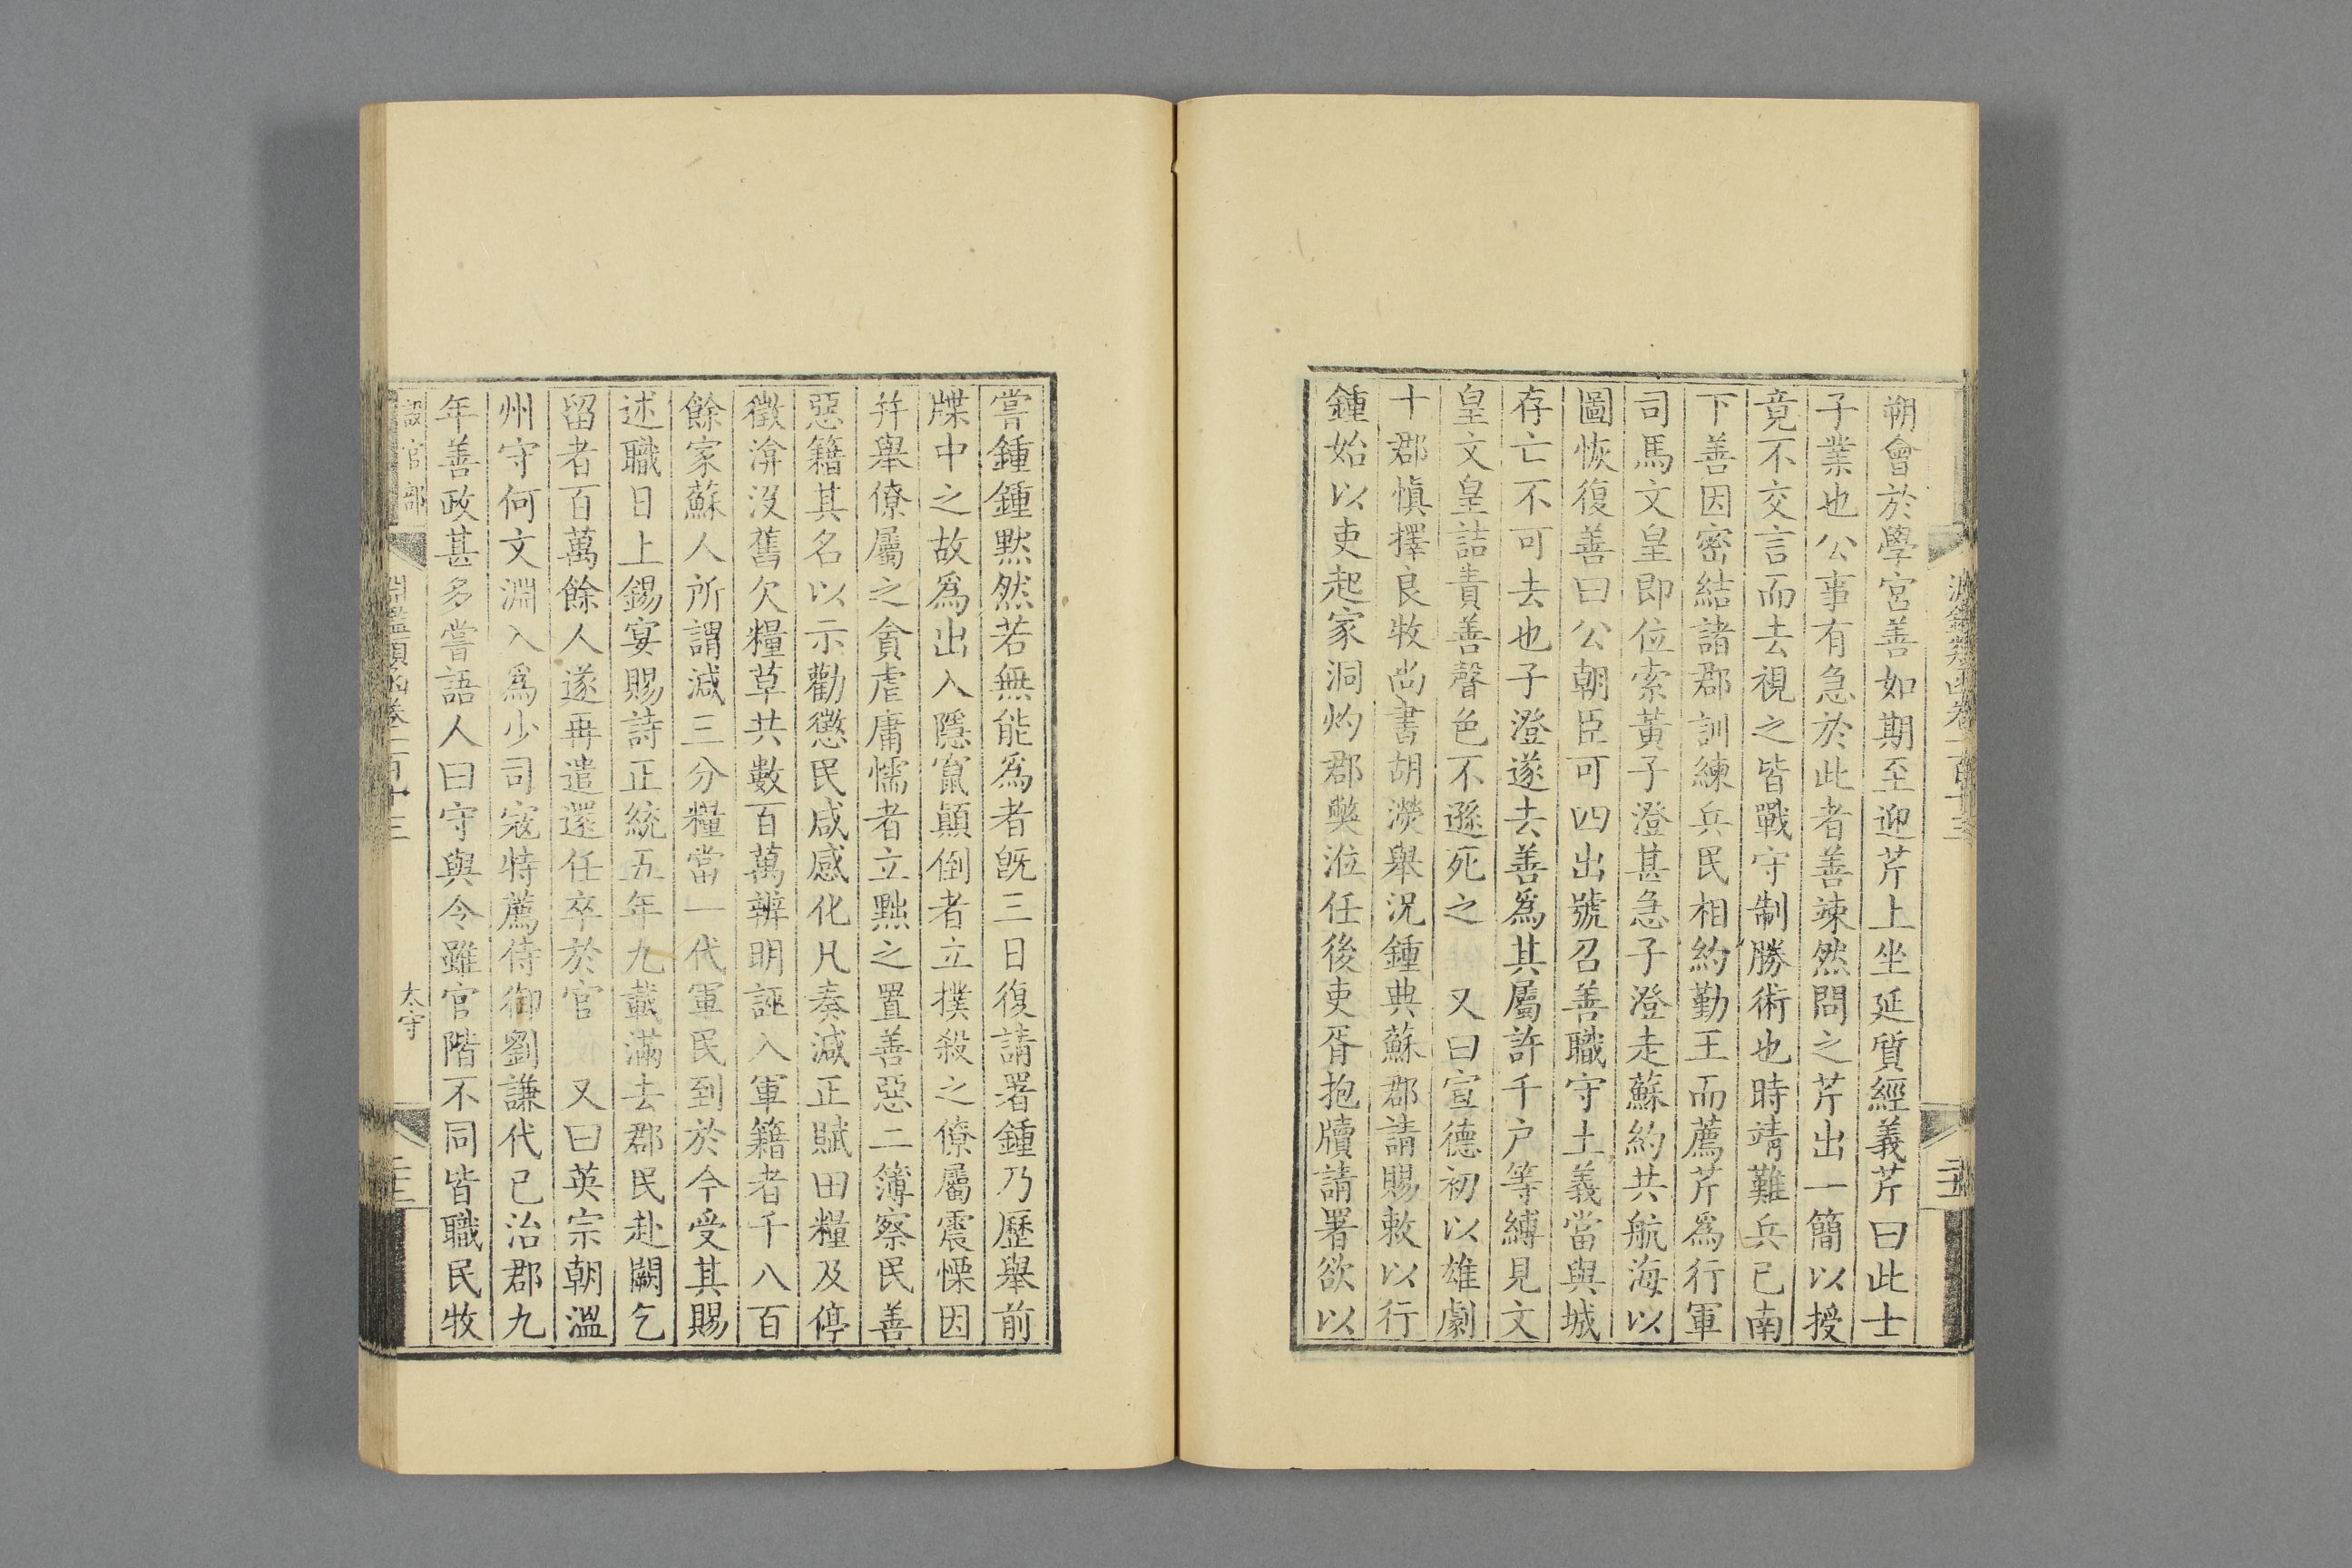 朔會於學宮善如期至迎芹上坐延質經義芹曰此士
子業也公事有急於此者善竦然問之芹出一簡以授
竟不交言而去視之皆戰守制勝術也時靖難兵已南
下善因密結諸郡訓練兵民相約勤王而薦芹爲行軍
司馬文皇即位索黃子澄甚急子澄走蘇約共航海以
圖恢復善曰公朝臣可四出號召善職守土義當與城
存亡不可去也子澄遂去善爲其屬許千户等縛見文
皇文皇詰責善聲色不遜死之 又曰宣德初以雄劇
十郡慎擇良牧尚書胡濙舉況鍾典蘇郡請賜敕以行
鍾始以吏起家洞灼郡獘涖任後吏胥抱牘請署欲以
嘗鍾鍾默然若無能爲者旣三日復請署鍾乃歷舉前
牒中之故爲出入隱竄顛倒者立撲殺之僚屬震慄因
幷舉僚屬之貪虐庸懦者立黜之置善惡二簿察民善
惡籍其名以示勸懲民咸感化凡奏減正賦田糧及停
徵渰沒舊欠糧草共數百萬辨明誣入軍籍者千八百
餘家蘇人所謂減三分糧當一代軍民到於今受其賜
述職日上錫宴賜詩正統五年九載滿去郡民赴闕乞
留者百萬餘人遂再遣還任卒於官 又曰英宗朝溫
州守何文淵入爲少司寇特薦侍御劉謙代已治郡九
年善政甚多嘗語人曰守與令雖官階不同皆職民牧
設官部 淵鑑類函卷一百十三 太守